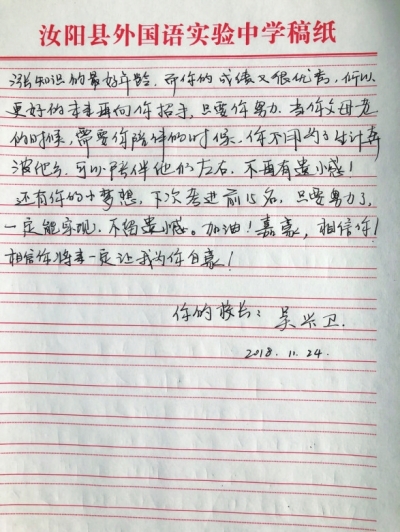 汝阳县外国语实验中学稿纸
涨知识的最好年龄. 而你的成绩又很优秀, 所以
更好的未来再向你招手, 只要你努力. 当你父母老
的时候, 需要你陪伴的时候. 你不用为了生计奔
波他乡. 可以陪伴他们左右. 不再有遗憾!
还有你的小梦想, 下次考进前15名. 只要努力了,
一定能实现. 不留遗憾。加油! 嘉豪, 相信你!
相信你将来一定让我为你自豪!
你的校长: 吴兴卫.
2018. 11. 24.